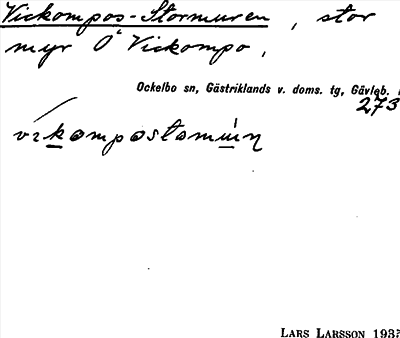 Vickompos-Stormuren, stor
myr O Vickompo,
Ockelbo sn, Gästriklands v. doms. tg, Gävleb.
273
LARS LARSSON 1935